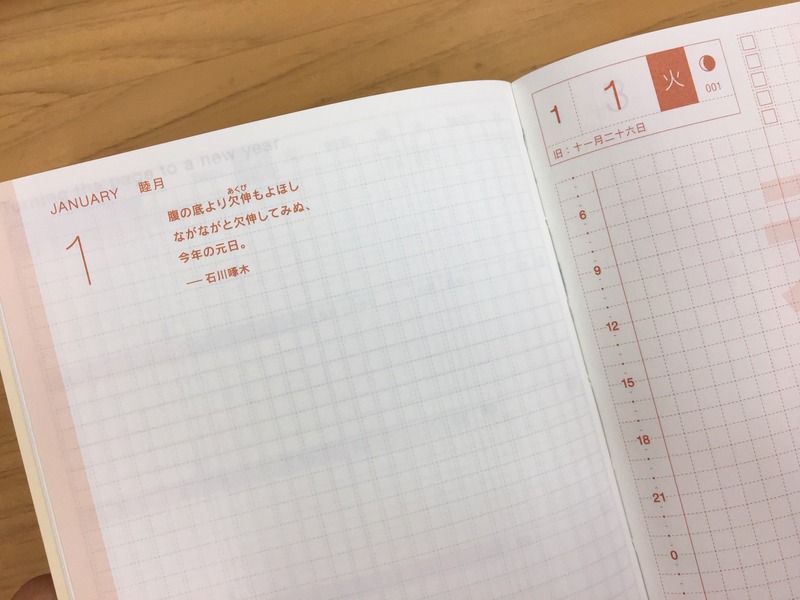 JANUARY 睦月
1
あくび
腹の底より欠伸もよほし
ながながと欠伸してみぬ、
今年の元日。
── 石川啄木
1 1 火
001
旧:十一月二十六日
6
9
12
15
18
21
0